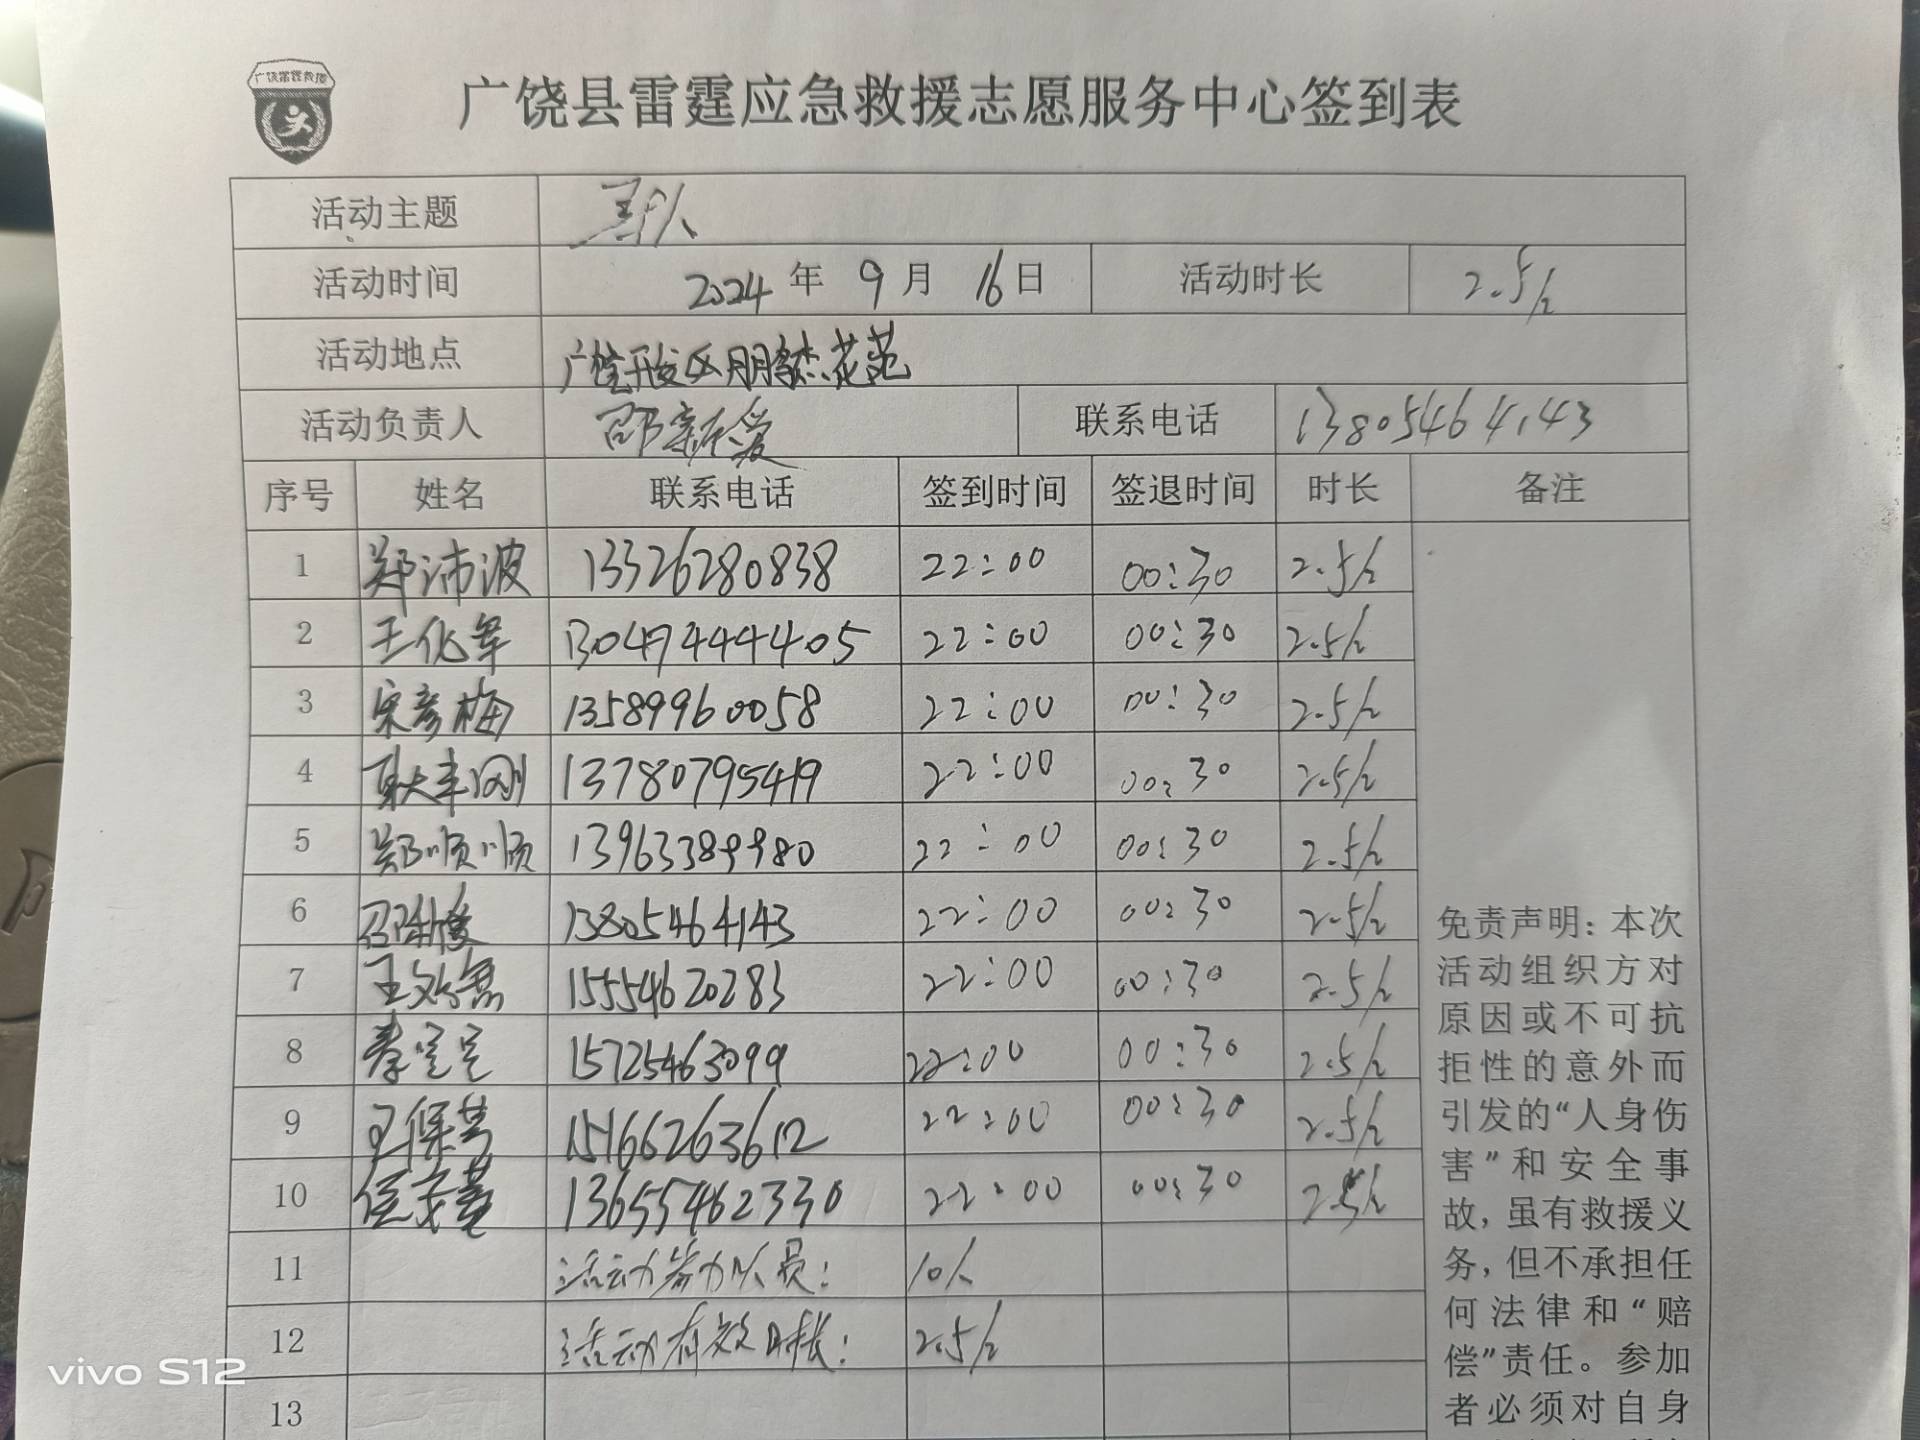 广饶雷霆救援
广饶县雷霆应急救援志愿服务中心签到表
活动主题 寻人
活动时间 2024年 9月 16日 活动时长 2.5/h
活动地点 广饶开发区朋杰花苑
活动负责人 邵新爱 联系电话 13805464143
序号 姓名 联系电话 签到时间 签退时间 时长 备注
1 郑沛波 13326280838 22:00 00:30 2.5/h
2 王化军 13047444405 22:00 00:30 2.5/h
3 宋彦梅 13589960058 22:00 00:30 2.5/h
4 耿丰刚 13780795419 22:00 00:30 2.5/h
5 郑顺顺 13963389980 22:00 00:30 2.5/h
6 邵新爱 13805464143 22:00 00:30 2.5/h
7 王 15554620283 22:00 00:30 2.5/h
8 秦 15725463099 22:00 00:30 2.5/h
9 王保 15166263612 22:00 00:30 2.5/h
10 13655462330 22:00 00:30 2.5/h
11 活动参加队员: 10人
12 活动有效时长: 2.5/h
13
免责声明：本次
活动组织方对
原因或不可抗
拒性的意外而
引发的“人身伤
害”和安全事
故，虽有救援义
务，但不承担任
何法律和“赔
偿”责任。参加
者必须对自身
vivo S12